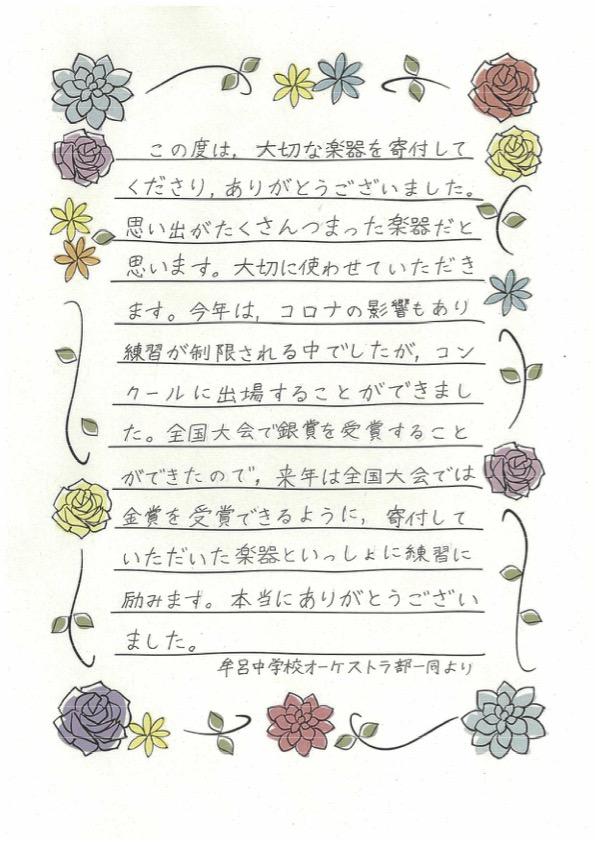 この度は，大切な楽器を寄付して
くださり，ありがとうございました。
思い出がたくさんつまった楽器だと
思います。大切に使わせていただき
ます。今年は，コロナの影響もあり
練習が制限される中でしたが，コン
クールに出場することができまし
た。全国大会で銀賞を受賞すること
ができたので，来年は全国大会では
金賞を受賞できるように，寄付して
いただいた楽器といっしょに練習に
励みます。本当にありがとうござい
ました。
牟呂中学校オーケストラ部一同より